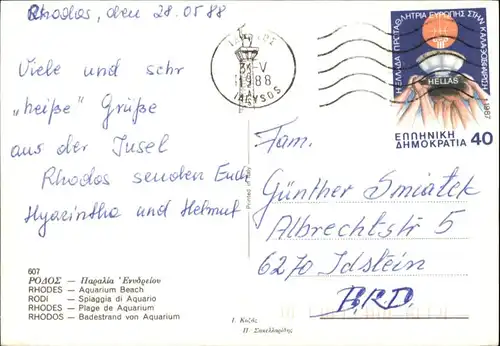 Rhodos, den 28.05.88
Viele und sehr
"heiße" Grüße
aus der Insel
Rhodos senden Euch
Hyacintha und Helmut
607
ΡΟΔΟΣ — Παραλία Ἐνυδρείου
RHODES — Aquarium Beach
RODI — Spiaggia di Aquario
RHODES — Plage de Aquarium
RHODOS — Badestrand von Aquarium
Printed in Italy
V
1988
Η ΕΛΛΑΔΑ ΠΡΩΤΑΘΛΗΤΡΙΑ ΕΥΡΩΠΗΣ ΣΤΗΝ ΚΑΛΑΘΟΣΦΑΙΡΙΣΗ
HELLAS
1987
ΕΛΛΗΝΙΚΗ
ΔΗΜΟΚΡΑΤΙΑ 40
Fam.
Günther Smiatek
Albrechtstr 5
6270 Idstein
B.R.D.
Π. Σακελλαρίδης